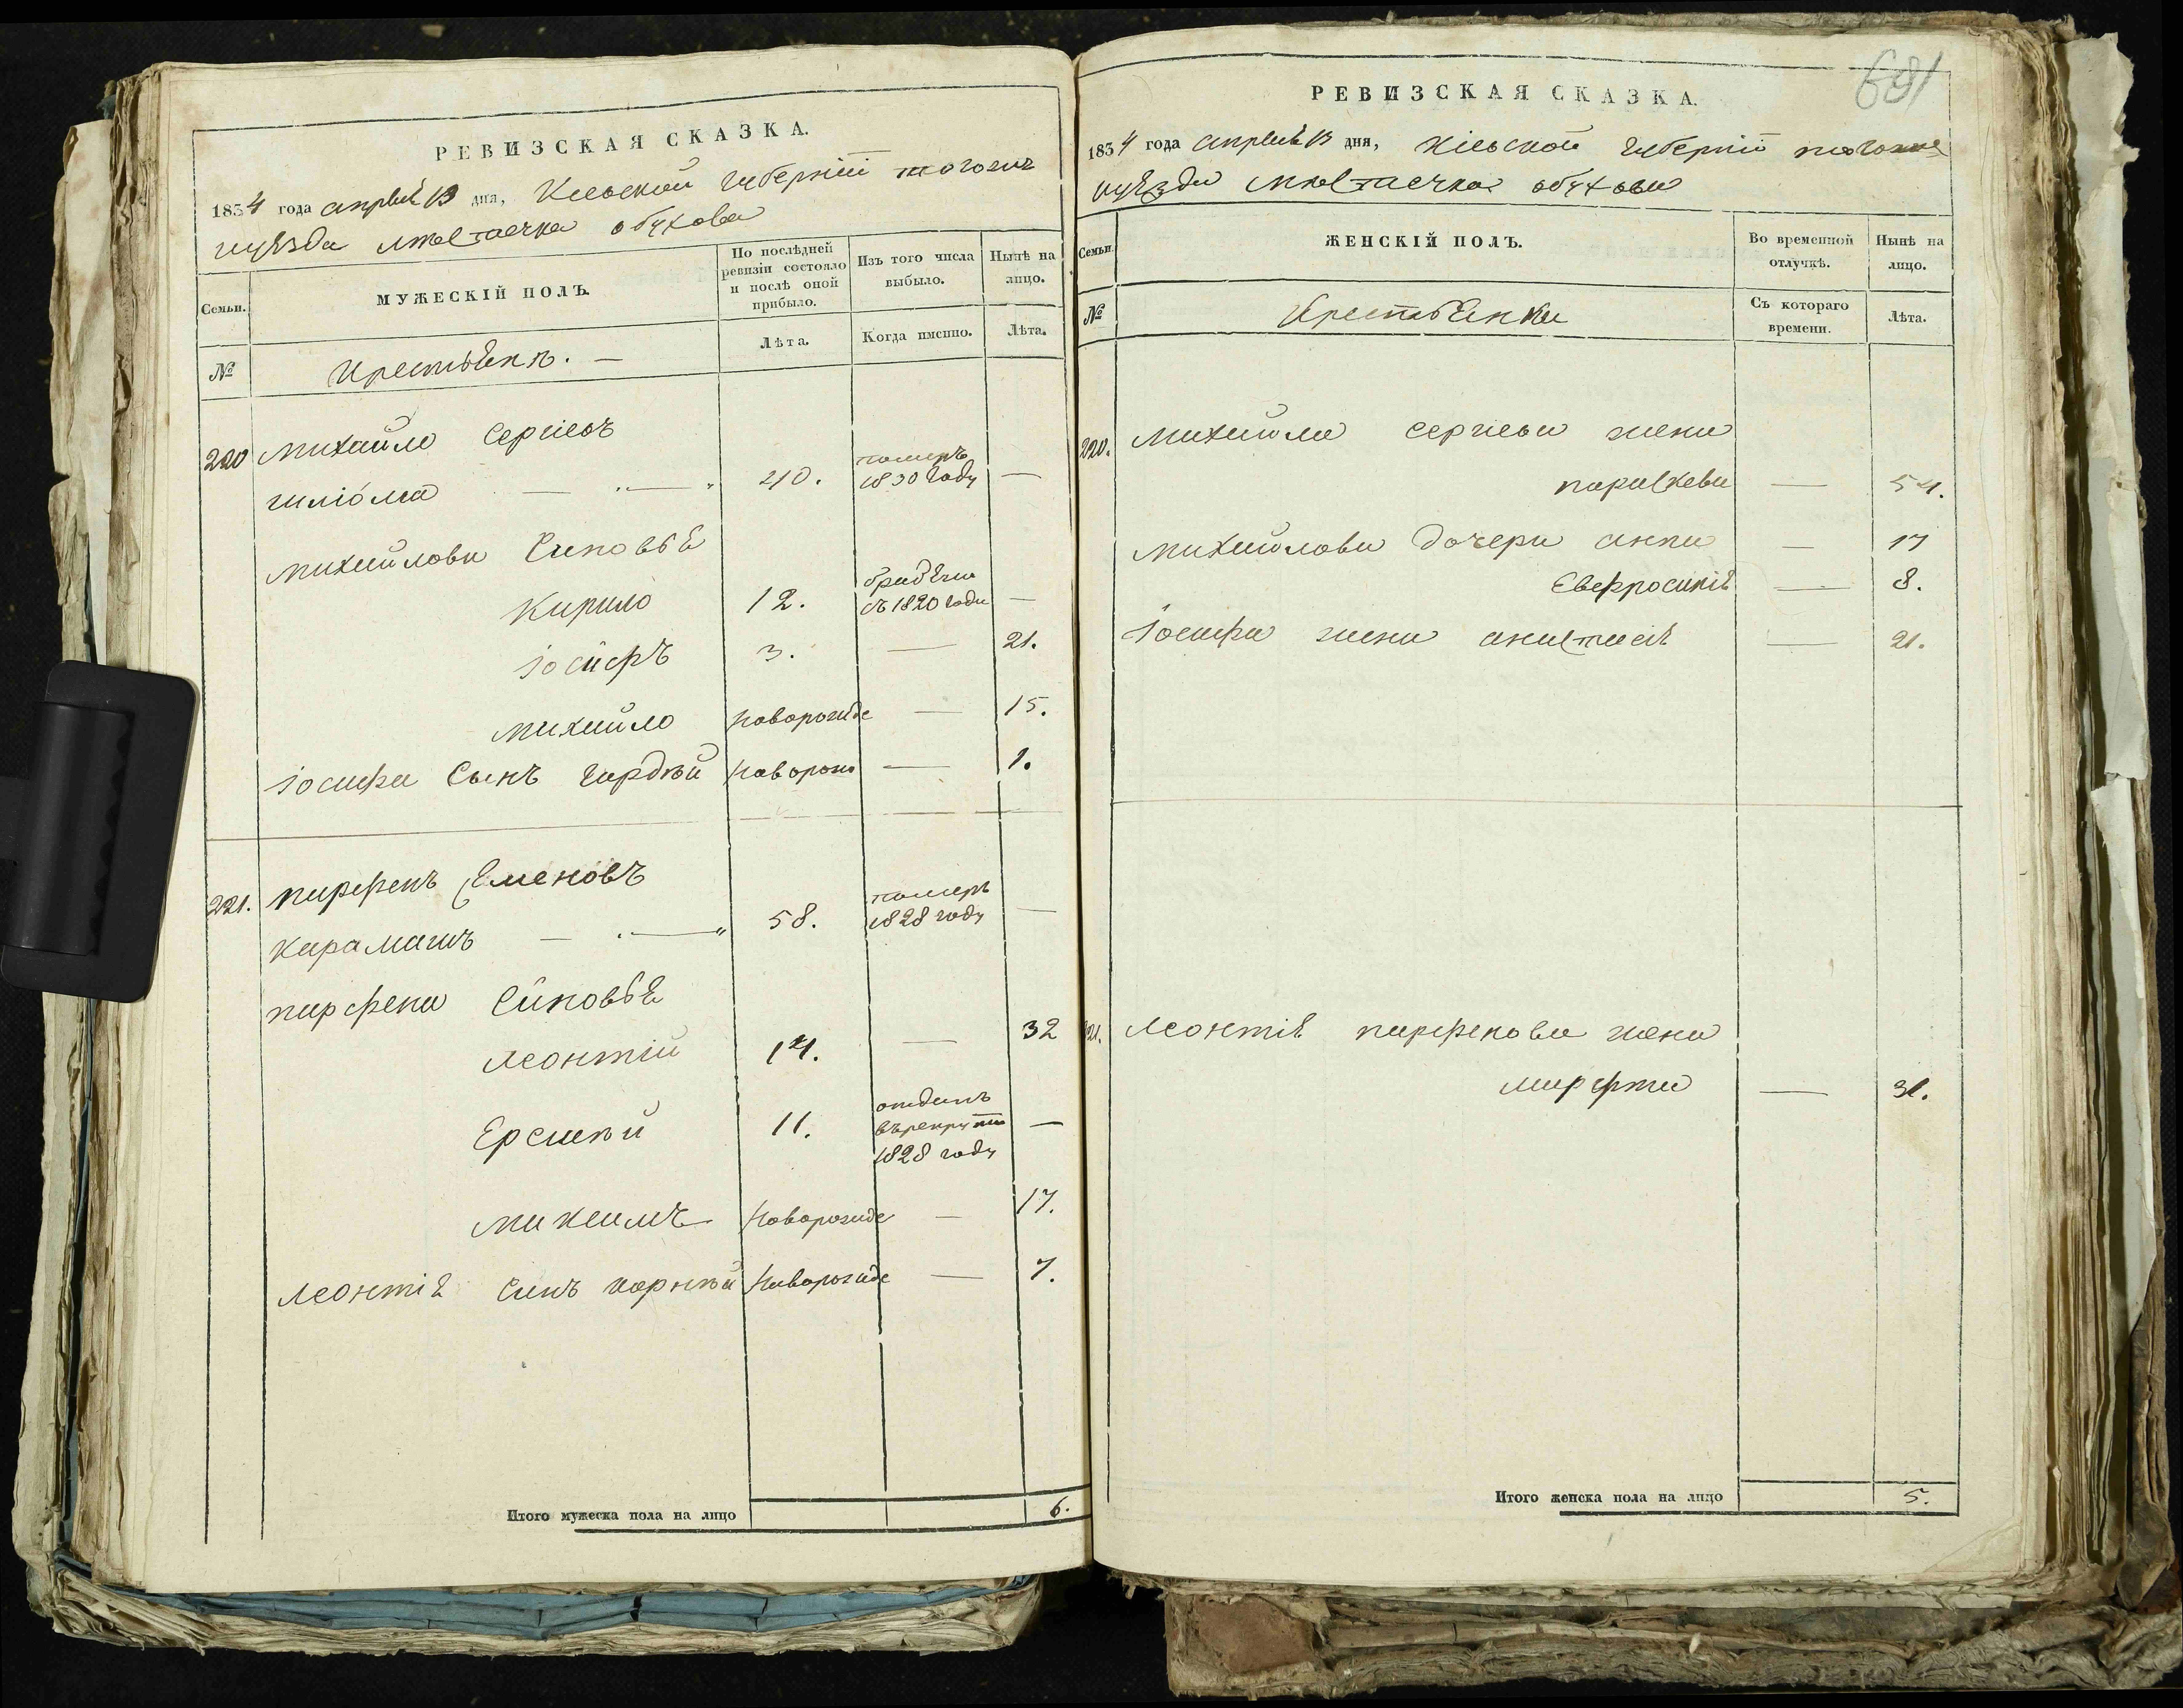 РЕВИЗСКАЯ СКАЗКА.
1834 года апреля 13 дня, Кіевской губерніи тогожъ
уѣзда мѣстечка обухова
Семьи.
МУЖЕСКІЙ ПОЛЪ.
По послѣдней ревизіи состояло и послѣ оной прибыло.
Изъ того числа выбыло.
Нынѣ на лицо.
№
Крестьянъ. —
Лѣта.
Когда именно.
Лѣта.
220 Михайло Сергіевъ
40. померъ 1830 году —
Михайлови Синовья
Кирило 12. съ 1820 года —
Іосифъ 3. — 21.
Михайло Новорожде — 15.
Іосифа Сынъ Гордѣй Новорож — 1.
221. Парфенъ Семеновъ
58. померъ 1828 году —
Парфена Синовья
Леонтій 14. — 32
11. отданъ въ рекруты 1828 году —
Максимъ Новорожде — 17.
Леонтія Синъ Корнѣй Новорожде — 7.
Итого мужеска пола на лицо 6.
681
РЕВИЗСКАЯ СКАЗКА.
1834 года апреля 13 дня, Кіевской губерніи тогоже
уѣзда мѣстечка обухова
Семьи.
ЖЕНСКІЙ ПОЛЪ.
Во временной отлучкѣ.
Нынѣ на лицо.
№
Крестьянки
Съ котораго времени.
Лѣта.
220. Михайла Сергіева жена
параскева — 54.
Михайлови дочери анна — 17
Евфросинія — 8.
Іосифа жена анастасія — 21.
221. Леонтія парфенова жена
марфта — 31.
Итого женска пола на лицо 5.